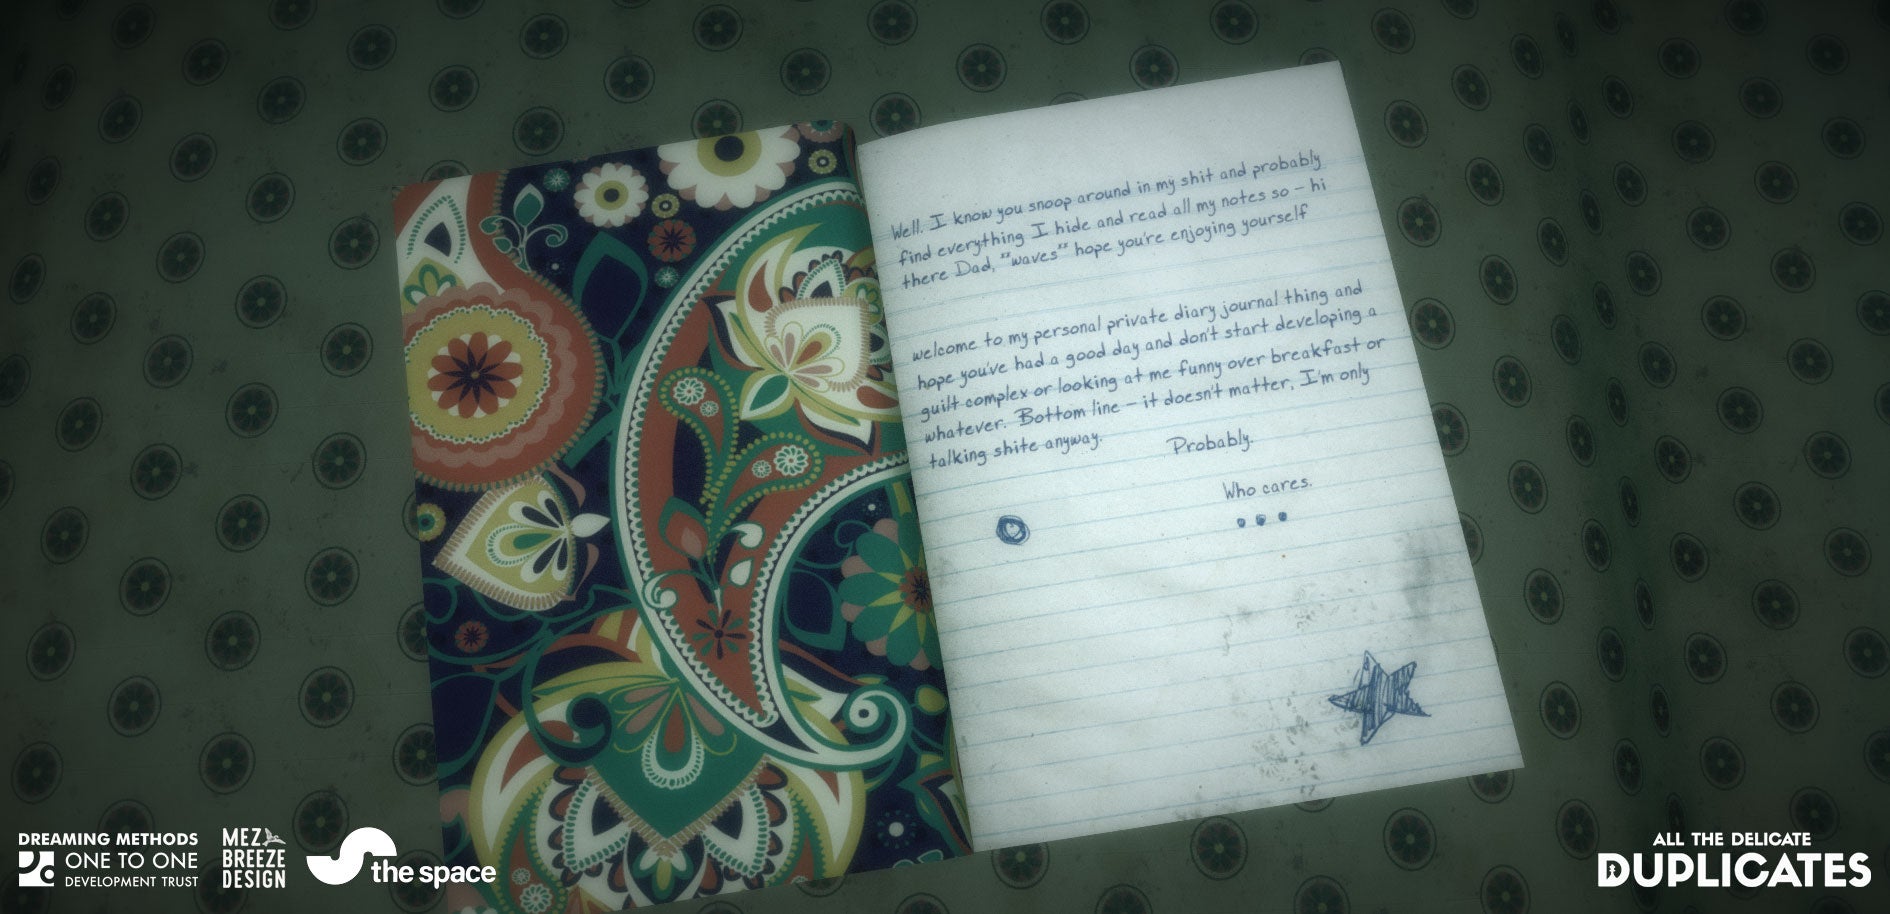 Well. I know you snoop around in my shit and probably
find everything I hide and read all my notes so - hi
there Dad, "waves" hope you're enjoying yourself
welcome to my personal private diary journal thing and
hope you've had a good day and don't start developing a
guilt complex or looking at me funny over breakfast or
whatever. Bottom line - it doesn't matter, I'm only
talking shite anyway. Probably.
Who cares.
DREAMING METHODS
ONE TO ONE
DEVELOPMENT TRUST
MEZ
BREEZE
DESIGN
the space
ALL THE DELICATE
DUPLICATES